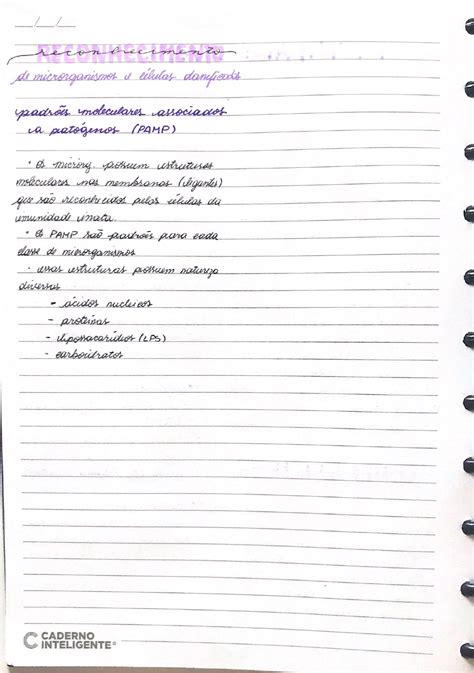 __/__/__
RECONHECIMENTO
reconhecimento
de microrganismos e células danificadas
padrões moleculares associados
a patógenos (PAMP)
• Os microrg. possuem estruturas
moleculares nas membranas (ligantes)
que são reconhecidos pelas células da
imunidade inata.
• Os PAMP são padrões para cada
classe de microrganismos
• essas estruturas possuem natureza
diversas
- ácidos nucleicos
- proteínas
- lipossacarídios (LPS)
- carboidratos
CADERNO
INTELIGENTE®